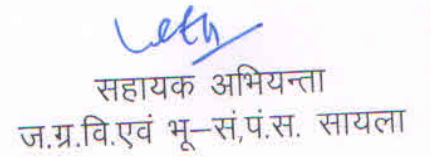 सहायक अभियन्ता
ज.ग्र.वि.एवं भू–सं,पं.स. सायला